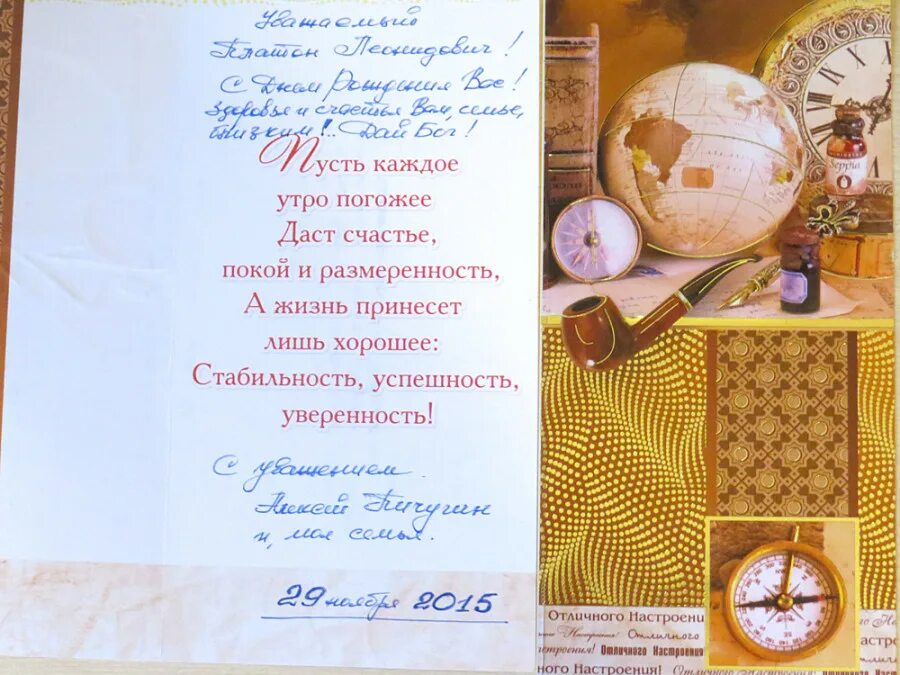 Уважаемый
Платон Леонидович!
С Днём Рождения Вас!
Здоровья и счастья Вам, семье,
близким!.. Дай Бог!
Пусть каждое
утро погожее
Даст счастье,
покой и размеренность,
А жизнь принесет
лишь хорошее:
Стабильность, успешность,
уверенность!
С уважением
Алексей Пичугин
и, моя семья.
29 ноября 2015
Seppia
Отличного Настроени
Настроения! Отличного
строения! Отличного Настроения
ного Настроения!